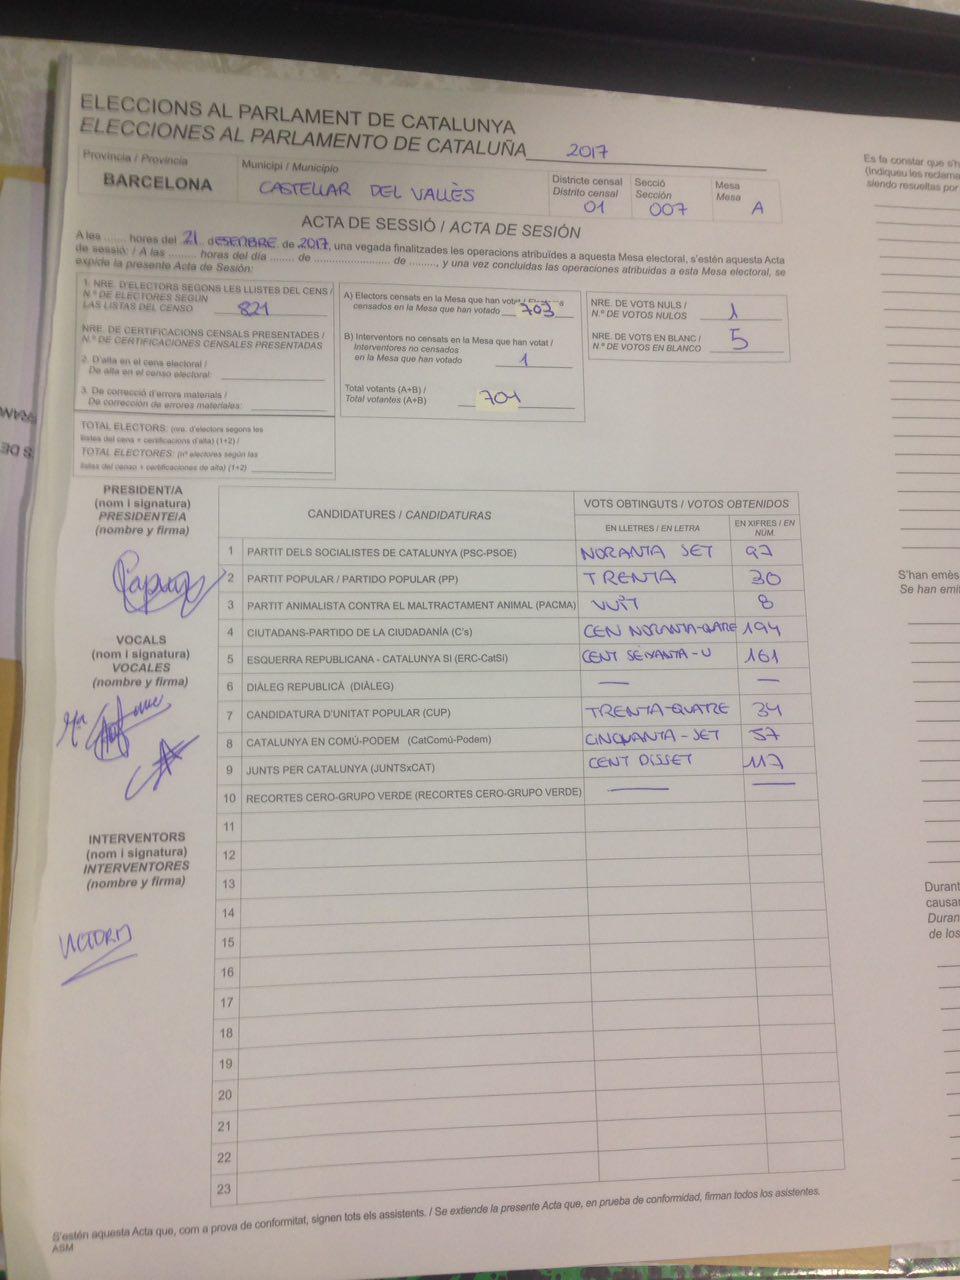 ELECCIONS AL PARLAMENT DE CATALUNYA
ELECCIONES AL PARLAMENTO DE CATALUÑA 2017
Província / Provincia
BARCELONA
Municipi / Municipio
CASTELLAR DEL VALLÈS
Districte censal
Distrito censal
01
Secció
Sección
007
Mesa
Mesa
A
ACTA DE SESSIÓ / ACTA DE SESIÓN
A les ....... hores del 21 de DESEMBRE de 2017, una vegada finalitzades les operacions atribuïdes a aquesta Mesa electoral, s'estén aquesta Acta
de sessió: / A las ......... horas del día ....... de .................... de ........, y una vez concluidas las operaciones atribuidas a esta Mesa electoral, se
expide la presente Acta de Sesión:
1. NRE. D'ELECTORS SEGONS LES LLISTES DEL CENS /
N.º DE ELECTORES SEGÚN
LAS LISTAS DEL CENSO 821
NRE. DE CERTIFICACIONS CENSALS PRESENTADES /
N.º DE CERTIFICACIONES CENSALES PRESENTADAS
2. D'alta en el cens electoral /
De alta en el censo electoral:
3. De correcció d'errors materials /
De corrección de errores materiales:
TOTAL ELECTORS: (nre. d'electors segons les
llistes del cens + certificacions d'alta) (1+2) /
TOTAL ELECTORES: (nº electores según las
listas del censo + certificaciones de alta) (1+2)
A) Electors censats en la Mesa que han votat /
censados en la Mesa que han votado 703
B) Interventors no censats en la Mesa que han votat /
Interventores no censados
en la Mesa que han votado 1
Total votants (A+B) /
Total votantes (A+B) 704
NRE. DE VOTS NULS /
N.º DE VOTOS NULOS 1
NRE. DE VOTS EN BLANC /
N.º DE VOTOS EN BLANCO 5
PRESIDENT/A
(nom i signatura)
PRESIDENTE/A
(nombre y firma)
VOCALS
(nom i signatura)
VOCALES
(nombre y firma)
INTERVENTORS
(nom i signatura)
INTERVENTORES
(nombre y firma)
CANDIDATURES / CANDIDATURAS
VOTS OBTINGUTS / VOTOS OBTENIDOS
EN LLETRES / EN LETRA
EN XIFRES / EN
NÚM.
1 PARTIT DELS SOCIALISTES DE CATALUNYA (PSC-PSOE) NORANTA SET 97
2 PARTIT POPULAR / PARTIDO POPULAR (PP) TRENTA 30
3 PARTIT ANIMALISTA CONTRA EL MALTRACTAMENT ANIMAL (PACMA) VUIT 8
4 CIUTADANS-PARTIDO DE LA CIUDADANÍA (C's) CEN NORANTA-QUATRE 194
5 ESQUERRA REPUBLICANA - CATALUNYA SÍ (ERC-CatSí) CENT SEIXANTA-U 161
6 DIÀLEG REPUBLICÀ (DIÀLEG) — —
7 CANDIDATURA D'UNITAT POPULAR (CUP) TRENTA-QUATRE 34
8 CATALUNYA EN COMÚ-PODEM (CatComú-Podem) CINQUANTA-SET 57
9 JUNTS PER CATALUNYA (JUNTSxCAT) CENT DISSET 117
10 RECORTES CERO-GRUPO VERDE (RECORTES CERO-GRUPO VERDE) — —
11
12
13
14
15
16
17
18
19
20
21
22
23
S'estén aquesta Acta que, com a prova de conformitat, signen tots els assistents. / Se extiende la presente Acta que, en prueba de conformidad, firman todos los asistentes.
ASM
Es fa constar que s'h
(Indiqueu les reclama
siendo resueltas por
S'han emès
Se han emit
Durant
causar
Duran
de los